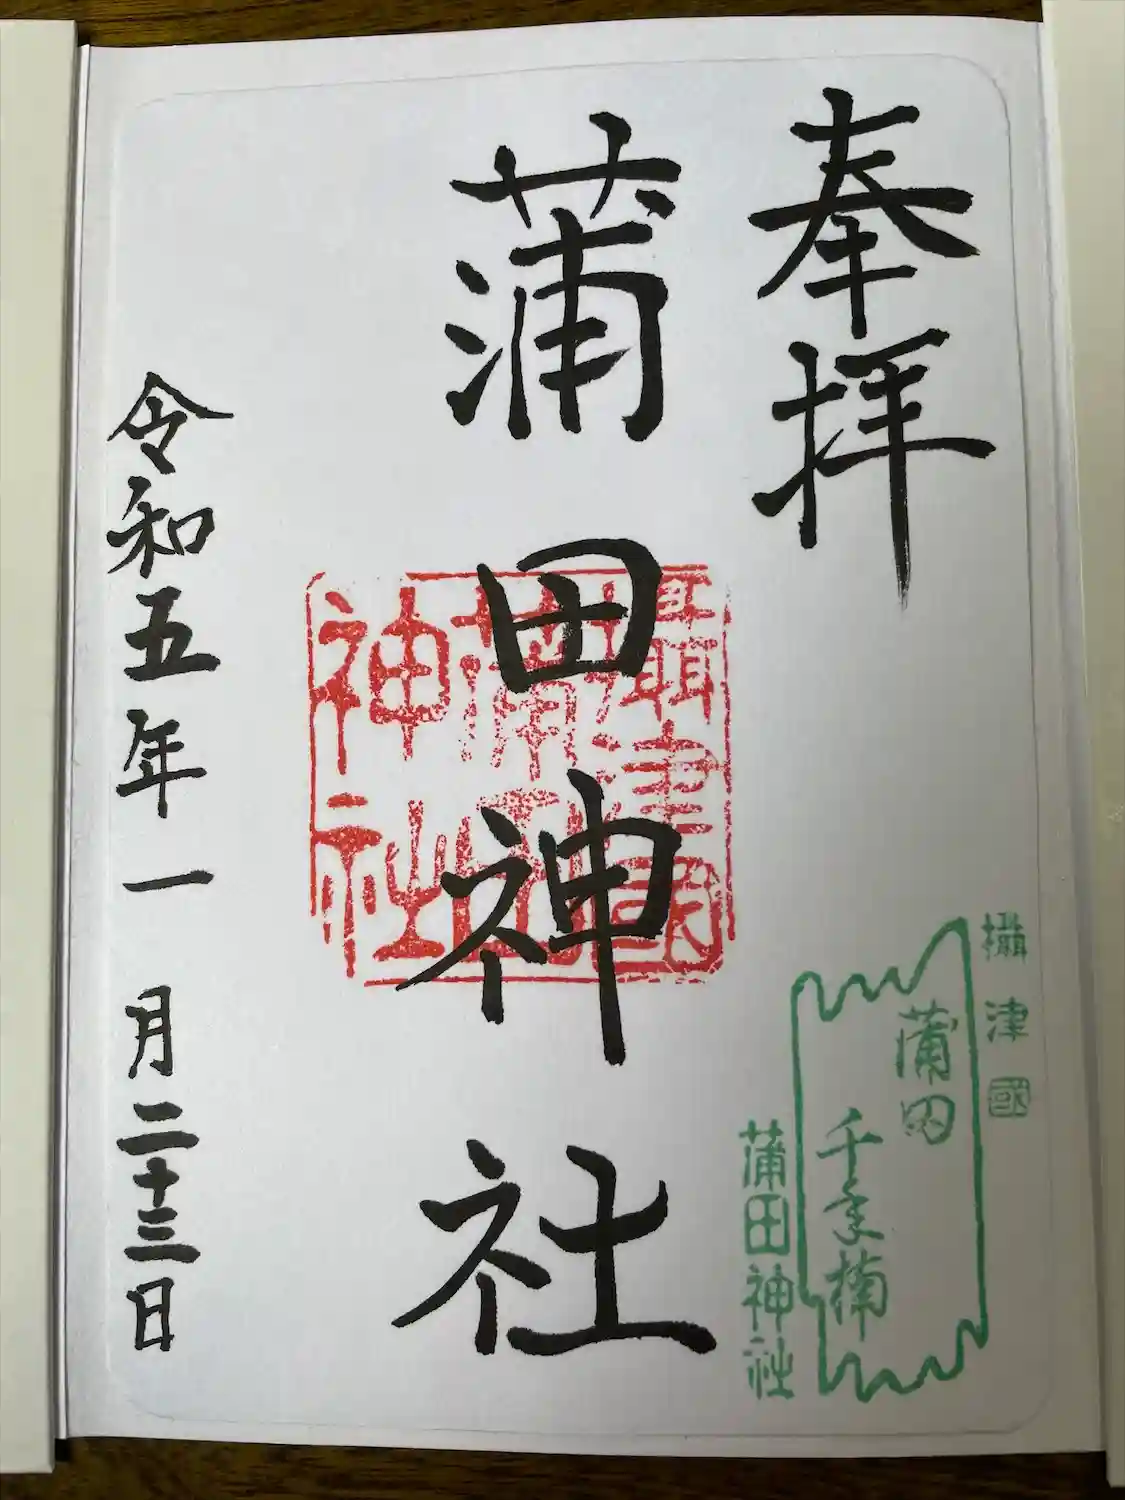 奉拝
攝津國
蒲田
千年楠
蒲田神社
蒲田神社
攝津國
蒲田
神社
令和五年一月二十三日